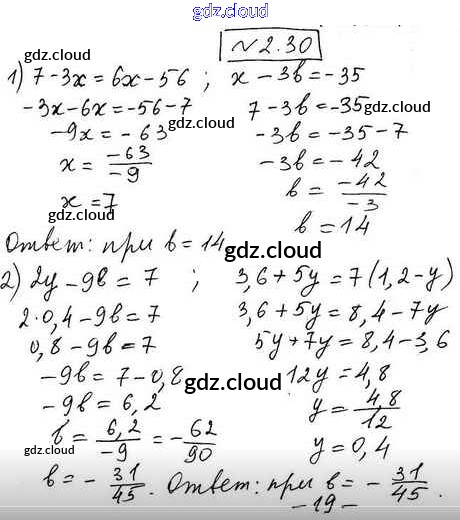 gdz.cloud
№2.30
gdz.cloud
1) 7-3x=6x-56 ; x-3b=-35
-3x-6x=-56-7 7-3b=-35 gdz.cloud
-9x=-63 gdz.cloud -3b=-35-7
x=\frac{-63}{-9} -3b=-42
x=7 b=\frac{-42}{-3}
gdz.cloud b=14
Ответ: при b=14
gdz.cloud gdz.cloud
2) 2y-9b=7 ; 3,6+5y=7(1,2-y)
2·0,4-9b=7 3,6+5y=8,4-7y
0,8-9b=7 5y+7y=8,4-3,6
-9b=7-0,8 gdz.cloud 12y=4,8
-9b=6,2 y=\frac{4,8}{12}
b=\frac{6,2}{-9}=-\frac{62}{90} y=0,4
gdz.cloud
b=-\frac{31}{45}. Ответ: при b=-\frac{31}{45}.
-19-
gdz.cloud